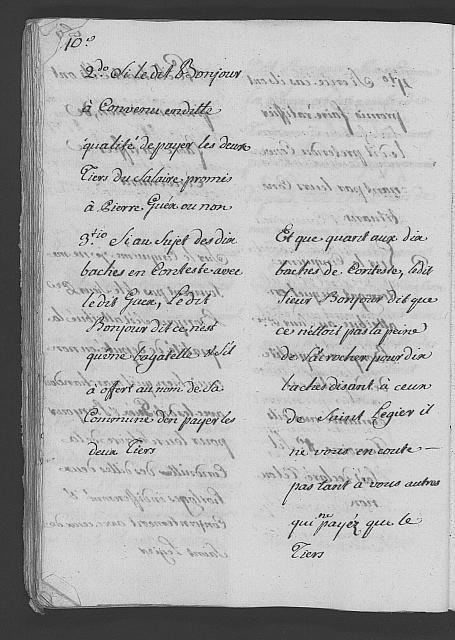 10.º
2.do Si le dit Bonjour
à Convenu en ditte
qualité de payer les deux
Tiers du Salaire promis
à Pierre Guéx ou non
3.tio Si au Sujet des dix
baches en Conteste avec
le dit Guex, le dit
Bonjour dit ce n'est
qu'une bagatelle & s'il
à offert au nom de Sa
Commune d'en payer les
deux Tiers
Et que quant aux dix
baches de Conteste, le dit
Sieur Bonjour dit que
ce nétoit pas la peine
de S'acrocher pour dix
baches disant à ceux
de Saint Legier il
ne vous en coute
pas tant à vous autres
qui ne payéz que le
Tiers